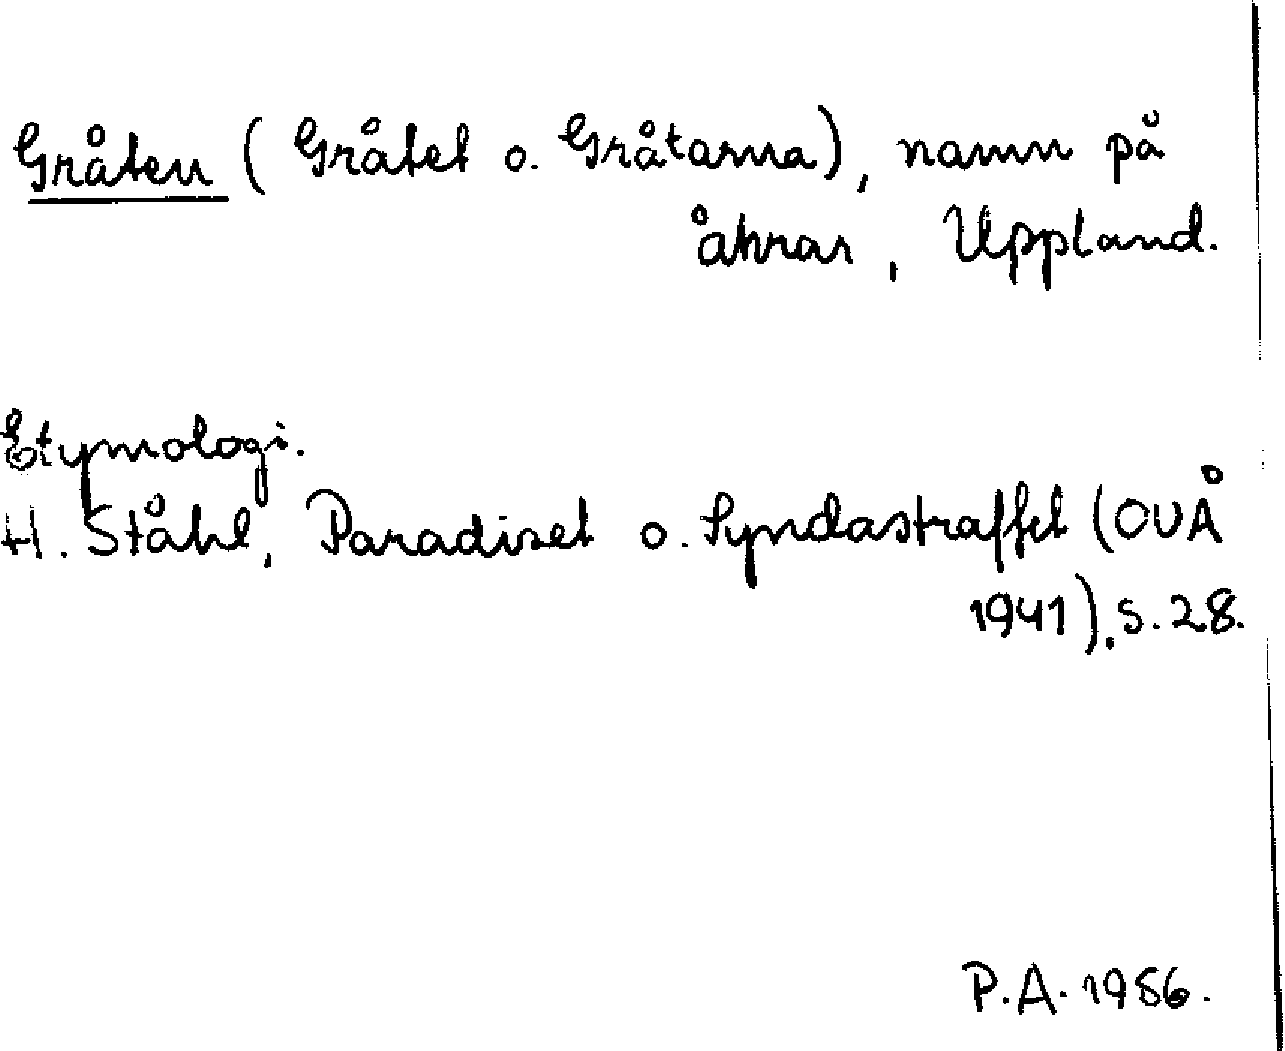 Gråten (Gråtet o. Gråtarna), namn på
åkrar, Uppland.
Etymologi.
H. Ståhl, Paradiset o. Syndastraffet (OUÅ
1941), s. 28.
P.A. 1956.